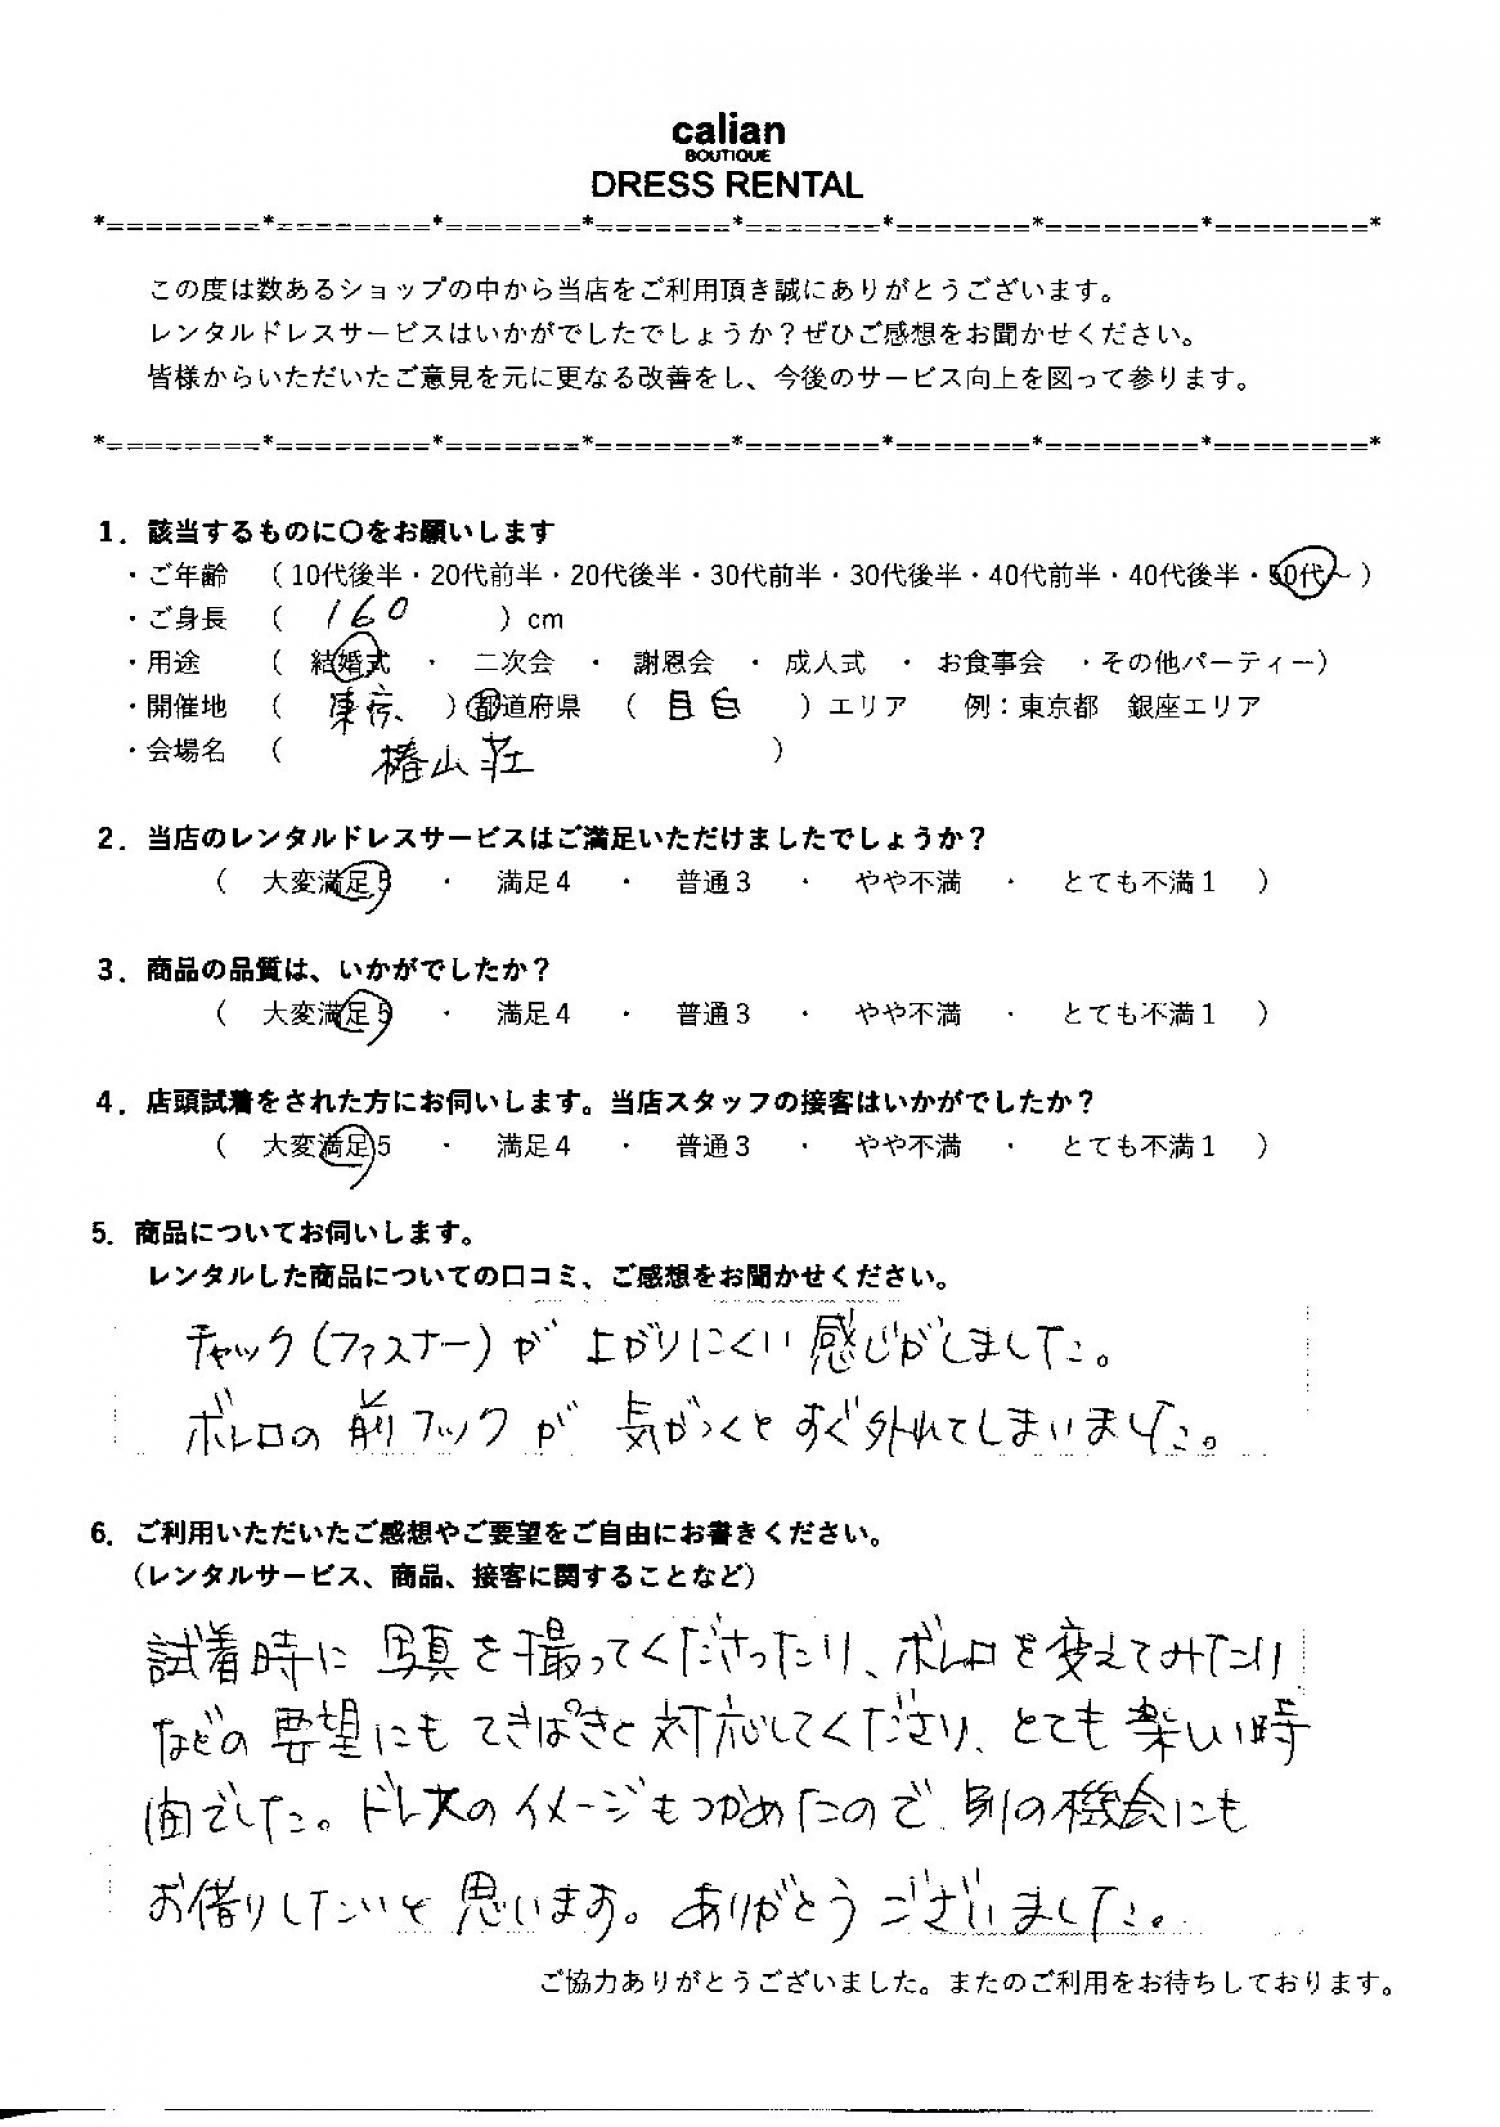 calian
BOUTIQUE
DRESS RENTAL
*=========*=========*========*========*========*========*=========*=========*
この度は数あるショップの中から当店をご利用頂き誠にありがとうございます。
レンタルドレスサービスはいかがでしたでしょうか？ぜひご感想をお聞かせください。
皆様からいただいたご意見を元に更なる改善をし、今後のサービス向上を図って参ります。
*=========*=========*========*========*========*========*=========*=========*
1．該当するものに〇をお願いします
・ご年齢 （ 10代後半・20代前半・20代後半・30代前半・30代後半・40代前半・40代後半・50代～ ）
・ご身長 （ 160 ） cm
・用途 （ 結婚式 ・ 二次会 ・ 謝恩会 ・ 成人式 ・ お食事会 ・その他パーティー）
・開催地 （ 東京 ）都道府県 （ 目白 ）エリア 例：東京都 銀座エリア
・会場名 （ 椿山荘 ）
2．当店のレンタルドレスサービスはご満足いただけましたでしょうか？
（ 大変満足5 ・ 満足４ ・ 普通３ ・ やや不満 ・ とても不満１ ）
3．商品の品質は、いかがでしたか？
（ 大変満足5 ・ 満足４ ・ 普通３ ・ やや不満 ・ とても不満１ ）
4．店頭試着をされた方にお伺いします。当店スタッフの接客はいかがでしたか？
（ 大変満足5 ・ 満足４ ・ 普通３ ・ やや不満 ・ とても不満１ ）
5．商品についてお伺いします。
レンタルした商品についての口コミ、ご感想をお聞かせください。
チャック(ファスナー)が上がりにくい感じがしました。
ボレロの前フックが気がつくとすぐ外れてしまいました。
6．ご利用いただいたご感想やご要望をご自由にお書きください。
（レンタルサービス、商品、接客に関することなど）
試着時に写真を撮ってくださったり、ボレロを変えてみたり
などの要望にもてきぱきと対応してくださり、とても楽しい時
間でした。ドレスのイメージもつかめたので、別の機会にも
お借りしたいと思います。ありがとうございました。
ご協力ありがとうございました。またのご利用をお待ちしております。